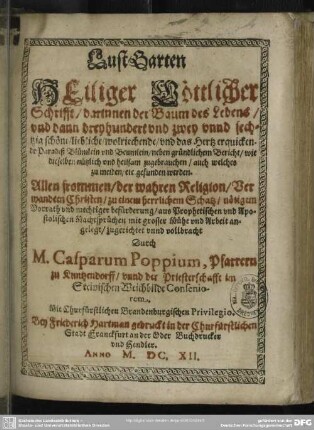 Lust Garten
HEiliger Göttlicher
Schrifft / darinnen der Baum des Lebens /
vnd dann dreyhundert vnd zwey vnnd sech-
tzig schöne / liebliche / wolriechende / vnd das Hertz erquicken-
de Paradiß Blümlein vnd Beumlein / neben gründlichem Bericht / wie
dieselben nützlich vnd heilsam zugebrauchen / auch welches
zu meiden / etc gefunden werden.
Allen frommen / der wahren Religion / Ver
wandten Christen / zu einem herrlichem Schatz / nötigen
Vorrath vnd mechtiger beförderung / aus Prophetischen vnd Apo-
stolischen Machtsprüchen mit grosser Mühe vnd Arbeit an-
gelegt / zugerichtet vnnd vollbracht
Durch
M. Casparum Poppium, Pfarrern
zu Kuntzendorff / vnnd der Priesterschafft im
Weichbilde Consenio-
rem.
Mit Churfürstlichem Brandenburgischen Privilegio.
Bey Friederich Hartman gedruckt in der Churfürstlichen
Stadt Franckfurt an der Oder Buchdrucker
vnd Hendler.
ANNO M. DC. XII.